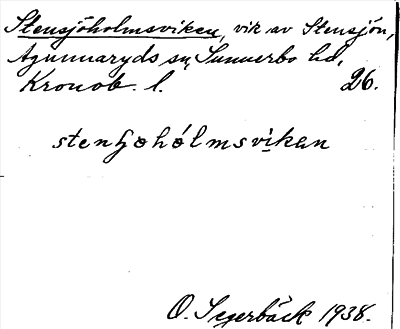 Stensjöholmsviken, vik av Stensjön,
Agunnaryds sn, Sunnerbo hd,
Kronob. l. 26.
stenʃøhólmsvikan
O. Segerbäck 1938.